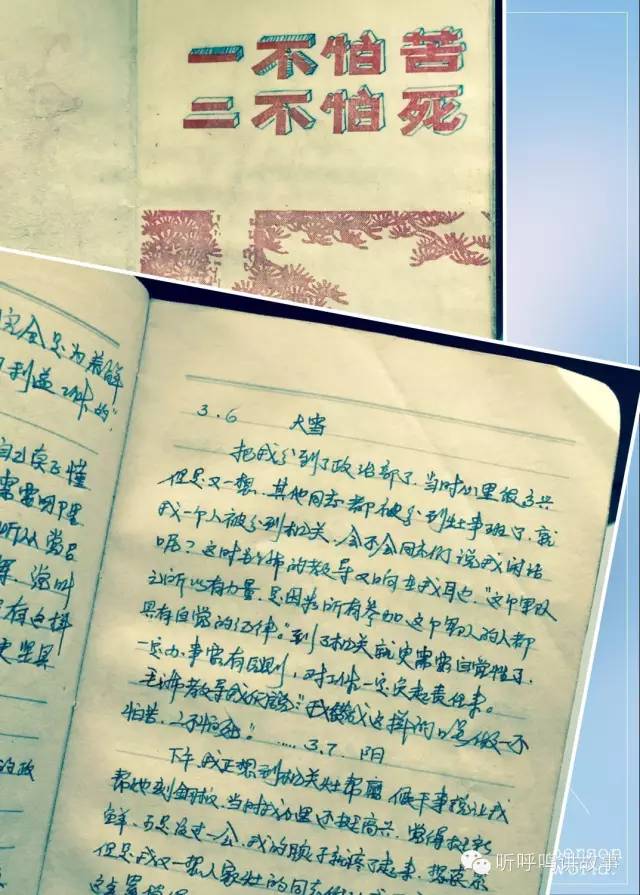 一不怕苦
二不怕死
完全是为着解
利益工作的"
自己读不懂
听从党
党叫
3.6 大雪
把我分到了政治部了，当时心里很高兴
但是又一想，其他同志都被分到炊事班了，就
我一个人被分到机关，会不会同志们说我闲话
呢？这时主席的教导又响在我耳边，"这个军队
之所以有力量，是因为所有参加这个军队的人都
具有自觉的纪律。"到了机关就更需要自觉性了，
一定办事要有原则，对工作一定负起责任来。
毛主席教导我们说："我赞成这样的口号，做一不
怕苦，二不怕死。"
3.7 阴
下午我正想到机关灶帮厨，
帮他刻钢板，当时我心里还挺高兴，觉得挺新
鲜，可是没过一会，我的脖子就疼了起来，
但是我又一想人家
的政
听呼鸣讲故事
benson
world.